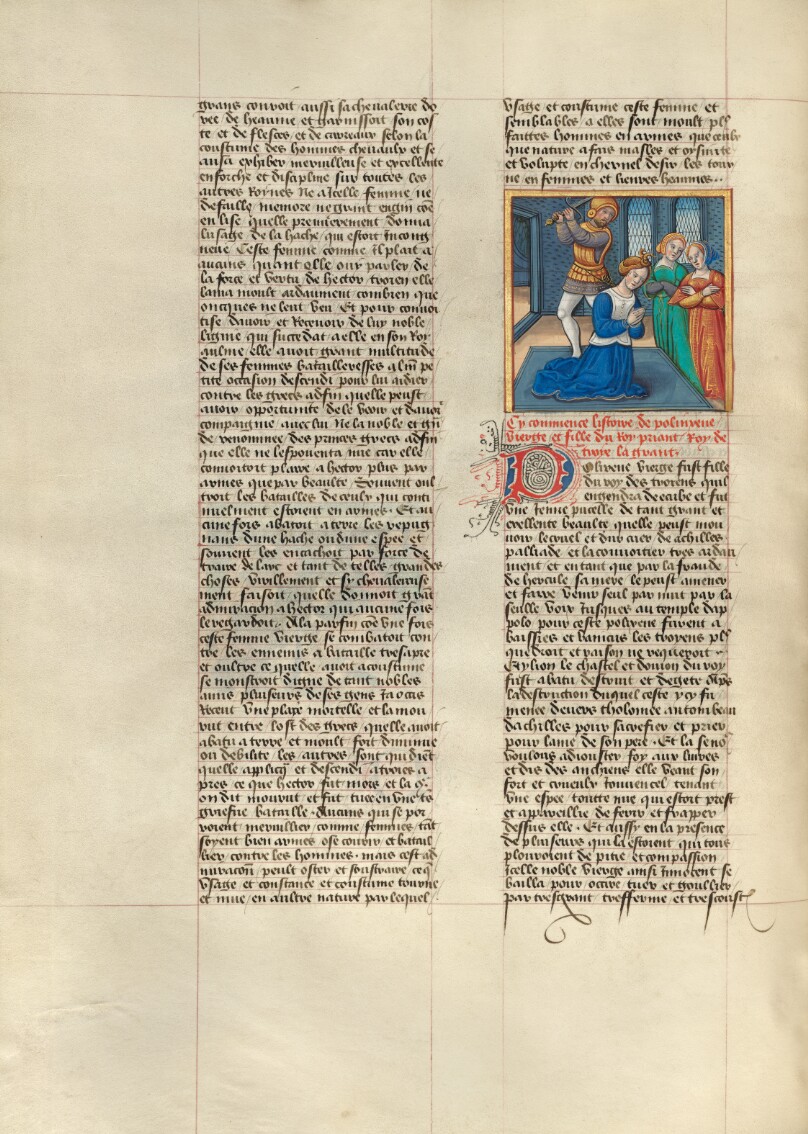 grans convoit aussi sa chevalerie de
vee de heaume et garnissoit son cos
te et de flesces et de carreaux selon la
coustume des hommes chevaulx et se
ausa exhiber merveilleuse et excellente
en forche et discipline sur toutes les
aultres Roynes Ne a icelle femme ne
defaille memore ne grant engin coe
en lise quelle premierement donna
lusage de la hache qui estoit Incong
neue Ceste femme comme Il plait a
aucuns quant elle oyt parler de
la force et vertu de hector troien elle
lama moult ardaument combien que
oncques ne leut veu Et pour convoi
tise davoir et Recevoir de luy noble
lignie qui succedat a elle en son Roy
aulme elle avoit grant multitude
de ses femmes batailleresses a lm pe
tite occasion descendi pour lui aidier
contre les grecs adfin quelle peust
avoir opportunite de le veoir et davoir
compaignie avec lui Ne la noble et gnt
de renommee des princes grecs adfin
que elle ne lespouenta mie car elle
convoitoit plaire a hector plus par
armes que par beaulte Souvent oul
troit les batailles de ceulx qui conti
nuelment estoient en armes Et au
cune fois abatoit a terre les repug
nans dune hache ou dune espee et
souvent les encachoit par force de
traire de larc et tant de telles grandes
choses virillement et sy chevalereuse
ment faisoit quelle donnoit grant
admiracion a hector qui aucune fois
le regardoit. A la parfin coe une fois
ceste femme vierge se combatoit con
tre les ennemis a bataille tresapre
et oultre ce quelle avoit acoustume
se monstroit digne de tant nobles
amis pluseurs de ses gens Ja occis
Recent une plaie mortelle et la mou
rut entre lost des grecs quelle avoit
abatu a terre et moult fort diminue
ou debilite les aultres sont qui dient
quelle appliqua et descendi a troies a
pres ce que hector fut mors et la coe
on dit mourut et fut tuee en une tres
griefve bataille Aucuns qui se por
roient mervillier comme femmes tant
soyent bien armes ose courir et batail
lier contre les hommes mais cest ad
miracon peult oster et soustraire ce q
Usage et constance et coustume tourne
et mue en aultre nature par lequel
Usage et coustume ceste femme et
semblables a elles sont moult pls
faittes hommes en armes que ceulx
que nature a fais masles et oysivete
et volupte en chernel desir les tour
ne en femmes et lievres heaumes..
Cy commence listoire de polixene
vierge et fille du Roy priant Roy de
troye la grant.
Polixene vierge fust fille
du roy des troyens quil
engendra de ecube et fut
une Jenne pucelle de tant grant et
excellente beaulte quelle peust mou
voir le cruel et dur cuer de achilles
palliade et la convoitier tres ardau
ment et en tant que par la fraude
de hercule sa mere le peust amener
et faire venir seul par nuit par la
seulle voix Jusques au temple dap
polo pour ceste polixene furent a
baissies et vaincus les troyens pls
que droit et raison ne requeroit
Et ylion le chastel et donion du roy
fust abatu destruit et degete Apres
la destruction duquel ceste y cy fu
menee devers tholomee au tombeau
dachilles pour sacrefier et prier
pour lame de son pere Et la se no
voulons adiouster foy aux livres
et dis des anchiens elle veant son
fort et cruelx Jouvencel tenant
une espee toutte nue qui estoit prest
et appareillie de ferir et frapper
dessus elle Et aussy en la presence
de pluseurs qui la estoient qui tous
plouroient de pitie et compassion
Icelle noble vierge ainsi Innocent se
bailla pour occire tuer et goullier
par tresgrant tresferme et tresconst